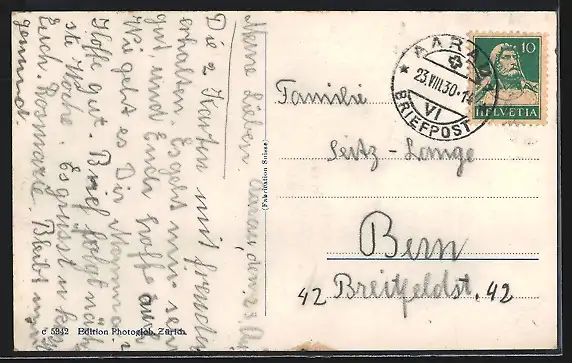 Meine Lieben. Aarau, den 23. Aug
Die 2 Karten mit Freuden
erhalten. Es geht mir sehr
gut und Euch hoffe auch.
Wie geht es Dir Mamma?
Hoffe gut. Brief folgt näch
ste Woche. Es grüsst u. küsst
Euch. Rosmarie. Bleibt mir
gesund.
(Fabrication Suisse)
c 5942 Edition Photoglob, Zürich.
AARAU
23.VIII.30.-14
VI
BRIEFPOST
10
HELVETIA
Familie
Seitz-Lange
Bern
42 Breitfeldst. 42